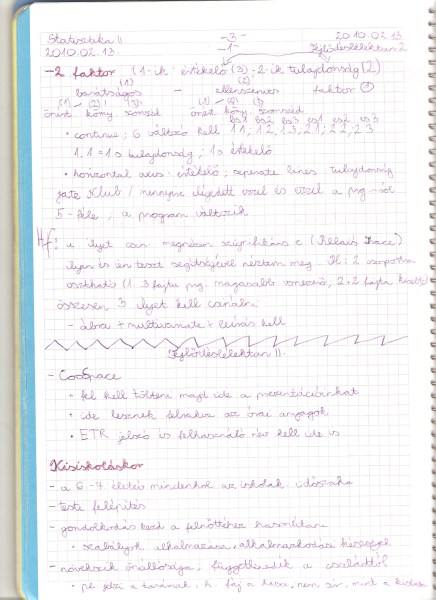 Statisztika II -3- 2010.02.13
2010.02.13. -1- Fejlődéslélektan 2
- 2 faktor (1-ik: értékelő (3); 2-ik tulajdonság (2)
(1) (2)
barátságos - ellenszenves faktor
(1) (2) (3) (1) (2) (3)
önért köny szomszéd önért köny szomszéd
és1 és2 és3 és1 és2 és3
• continue; 6 változó kell 1,1; 1,2; 1,3; 2,1; 2,2; 2,3
1.1 = 1 s tulajdonság; 1 s értékelő
• horizontal axis: értékelő; separate lines: tulajdonság
/ mennyire elégedett ezzel és ezzel a prg-ról
5-féle, a program változik
Hf: a ilyet csin. magnézem szignifikáns e (
ilyen is én teszt segítségével néztem meg. Pl: 2 csoportra
osztható (1. 3 fajta prg. magasabb 2. 2 fajta
összesen 3 ilyet kell csinálni
- ábra + multivariate + leírás kell
Fejlődéslélektan II.
- CooSpace
• fel kell tölteni majd ide a prezentációinkat
• ide lesznek felrakva az órai anyagok
• ETR jelszó és felhasználó név kell ide is
Kisiskoláskor
- a 6.-7. életév mindenhol az iskolák időszaka
- testi felépítés
- gondolkodás kezd a felnőttéhez hasonlítani
• szabályok alkalmazása, alkalmazkodási készség
- növekszik önállósága, függetlenedik a családtól
• pl. a tanárnak, h. fáj a hasa, nem sír, mint a